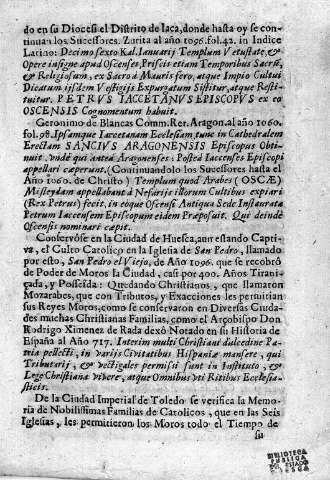 do en su Diocesi el Distrito de Iaca, donde hasta oy se con-
tinuan los Sucessores. Zurita al año 1096. fol. 42. in Indice
Latino: Decimo sexto Kal. Ianuarij Templum Vetustate, &
Opere insigne apud Oscenses, Priscis etiam Temporibus Sacrū,
& Religiosum, ex Sacro à Mauris fero, atque Impio Cultui
Dicatum ijsdem Vestigijs Expurgatum Sistitur, atque Resti-
tuitur. PETRVS IACCETANVS EPISCOPVS ex eo
OSCENSIS Cognomentum habuit.
Geronimo de Blancas Comm. Rer. Aragon. al año 1060.
fol. 98. Ipsamque Iaccetanam Ecclesiam, tunc in Cathedralem
Erectam SANCIVS ARAGONENSIS Episcopus Obti-
nuit, vnde qui antea Aragonenses: Postea Iaccenses Episcopi
appellari cæperunt. (Continuandolo los Sucessores hasta el
Año 1060. de Christo) Templum quod Arabes (OSCÆ)
Misleydam appellabant à Nefarijs illorum Cultibus expiari
(Rex Petrus) fecit, in eoque Oscensi Antiqua Sede Instaurata
Petrum Iaccensem Episcopum eidem Præposuit. Qui deinde
Oscensis nominari cæpit.
Conservòse en la Ciudad de Huesca, aun estando Capti-
va, el Culto Catolico en la Iglesia de San Pedro, llamado
por esto, San Pedro el Viejo, de Año 1096. que se recobrò
de Poder de Moros la Ciudad, casi por 400. Años Tirani-
çada, y Posseida: Quedando Christianos, que llamaron
Mozarabes, que con Tributos, y Exacciones les permitian
sus Reyes Moros, como se conservaron en Diversas Ciuda-
des muchas Christianas Familias, como el Arçobispo Don
Rodrigo Ximenez de Rada dexò Notado en su Historia de
España al Año 717. Interim multi Christiani dulcedine Pa-
tria pellecti, in varijs Civitatibus Hispaniæ mansere, qui
Tributarij, & vectigales permissi sunt in Instituto, &
Lege Christiana vivere, atque Omnibus vti Ritibus Ecclesia-
sticis.
De la Ciudad Imperial de Toledo se verifica la Memo-
ria de Nobilissimas Familias de Catolicos, que en las Seis
Iglesias, les permitieron los Moros todo el Tiempo de
su
BIBLIOTECA
PUBLICA
DEL ESTADO
HUESCA